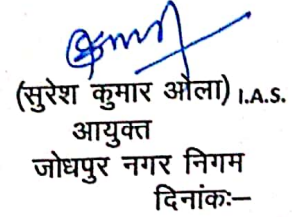 (सुरेश कुमार ओला) I.A.S.
आयुक्त
जोधपुर नगर निगम
दिनांकः—